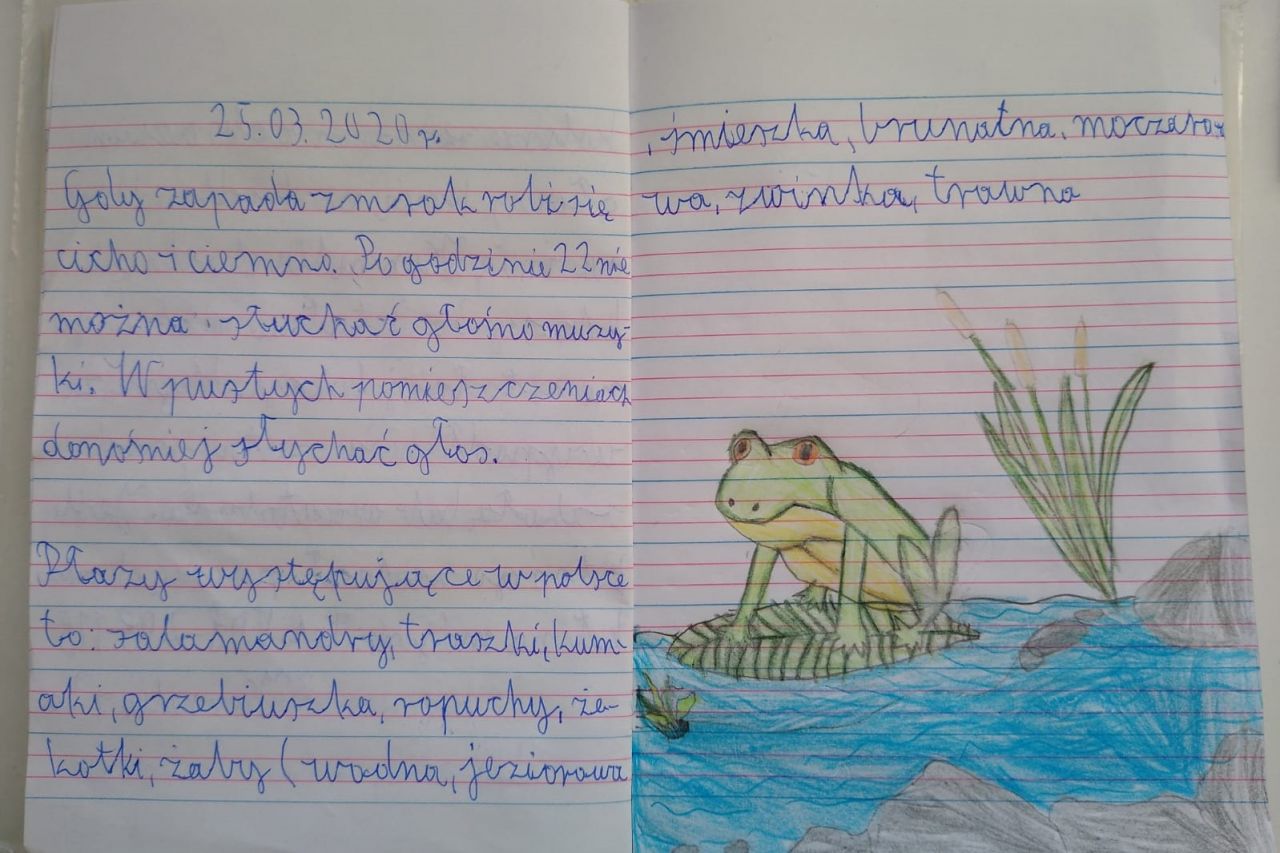 25.03.2020r.
Gdy zapada zmrok robi się
cicho i ciemno. Po godzinie 22 nie
można słuchać głośno muzy-
ki. W pustych pomieszczeniach
donośniej słychać głos.
Płazy występujące w polsce
to: salamandry, traszki, kum-
aki, grzebiuszka, ropuchy, że-
kotki, żaby (wodna, jeziorowa
, śmieszka, brunatna, moczaro-
wa, zwinka, trawna